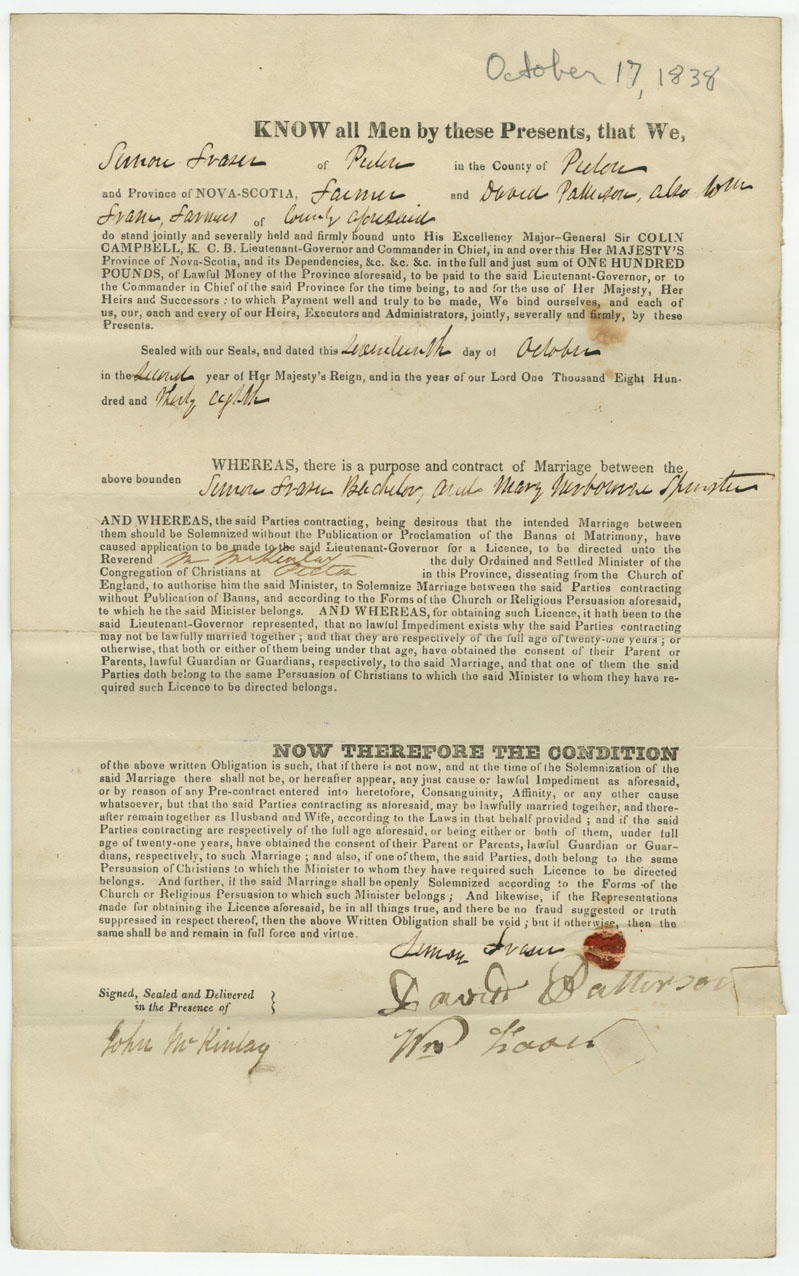 October 17, 1838
KNOW all Men by these Presents, that We,
Simon Fraser of Pictou in the County of Pictou
and Province of NOVA-SCOTIA, Farmer and David Patterson, also Wm
Fraser, Farmers of County aforesaid
do stand jointly and severally held and firmly bound unto His Excellency Major-General Sir COLIN
CAMPBELL, K. C. B. Lieutenant-Governor and Commander in Chief, in and over this Her MAJESTY'S
Province of Nova-Scotia, and its Dependencies, &c. &c. &c. in the full and just sum of ONE HUNDRED
POUNDS, of Lawful Money of the Province aforesaid, to be paid to the said Lieutenant-Governor, or to
the Commander in Chief of the said Province for the time being, to and for the use of Her Majesty, Her
Heirs and Successors : to which Payment well and truly to be made, We bind ourselves, and each of
us, our, each and every of our Heirs, Executors and Administrators, jointly, severally and firmly, by these
Presents.
Sealed with our Seals, and dated this Seventeenth day of October
in the Second year of Her Majesty's Reign, and in the year of our Lord One Thousand Eight Hun-
dred and Thirty eighth
WHEREAS, there is a purpose and contract of Marriage between the
above bounden Simon Fraser Bachelor, and Mary Spinster
AND WHEREAS, the said Parties contracting, being desirous that the intended Marriage between
them should be Solemnized without the Publication or Proclamation of the Banns of Matrimony, have
caused application to be made to the said Lieutenant-Governor for a Licence, to be directed unto the
Reverend McKinlay the duly Ordained and Settled Minister of the
Congregation of Christians at Pictou in this Province, dissenting from the Church of
England, to authorise him the said Minister, to Solemnize Marriage between the said Parties contracting
without Publication of Banns, and according to the Forms of the Church or Religious Persuasion aforesaid,
to which he the said Minister belongs. AND WHEREAS, for obtaining such Licence, it hath been to the
said Lieutenant-Governor represented, that no lawful Impediment exists why the said Parties contracting
may not be lawfully married together ; and that they are respectively of the full age of twenty-one years ; or
otherwise, that both or either of them being under that age, have obtained the consent of their Parent or
Parents, lawful Guardian or Guardians, respectively, to the said Marriage, and that one of them the said
Parties doth belong to the same Persuasion of Christians to which the said Minister to whom they have re-
quired such Licence to be directed belongs.
NOW THEREFORE THE CONDITION
of the above written Obligation is such, that if there is not now, and at the time of the Solemnization of the
said Marriage there shall not be, or hereafter appear, any just cause or lawful Impediment as aforesaid,
or by reason of any Pre-contract entered into heretofore, Consanguinity, Affinity, or any other cause
whatsoever, but that the said Parties contracting as aforesaid, may be lawfully married together, and there-
after remain together as Husband and Wife, according to the Laws in that behalf provided ; and if the said
Parties contracting are respectively of the full age aforesaid, or being either or both of them, under full
age of twenty-one years, have obtained the consent of their Parent or Parents, lawful Guardian or Guar-
dians, respectively, to such Marriage ; and also, if one of them, the said Parties, doth belong to the same
Persuasion of Christians to which the Minister to whom they have required such Licence to be directed
belongs. And further, if the said Marriage shall be openly Solemnized according to the Forms of the
Church or Religious Persuasion to which such Minister belongs ; And likewise, if the Representations
made for obtaining the Licence aforesaid, be in all things true, and there be no fraud suggested or truth
suppressed in respect thereof, then the above Written Obligation shall be void ; but if otherwise, then the
same shall be and remain in full force and virtue.
Simon Fraser
Signed, Sealed and Delivered
in the Presence of
David Patterson
John McKinlay
Wm Fraser